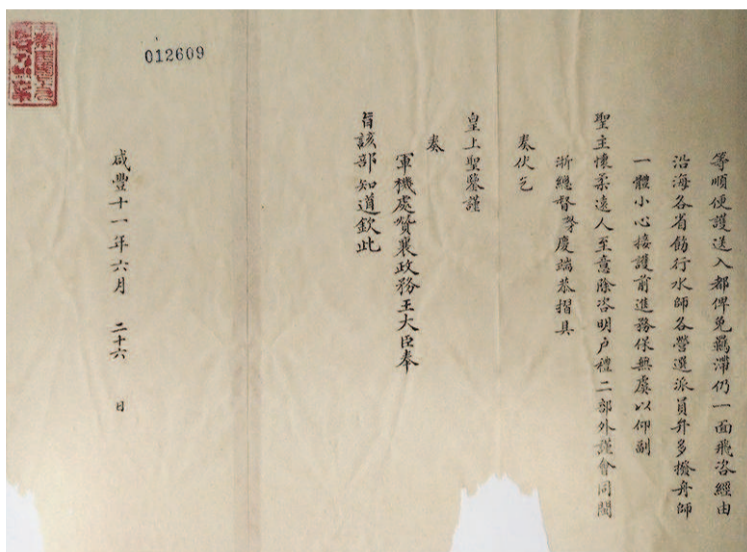 等順便護送入都俾免羈滯仍一面飛咨經由
沿海各省飭行水師各營選派員弁多撥舟師
一體小心接護前進務保無虞以仰副
聖主懷柔遠人至意除咨明戶禮二部外謹會同閩
浙總督臣慶端恭摺具
奏伏乞
皇上聖鑒謹
奏
軍機處贊襄政務王大臣奉
旨該部知道欽此
咸豐十一年六月 二十六 日
012609